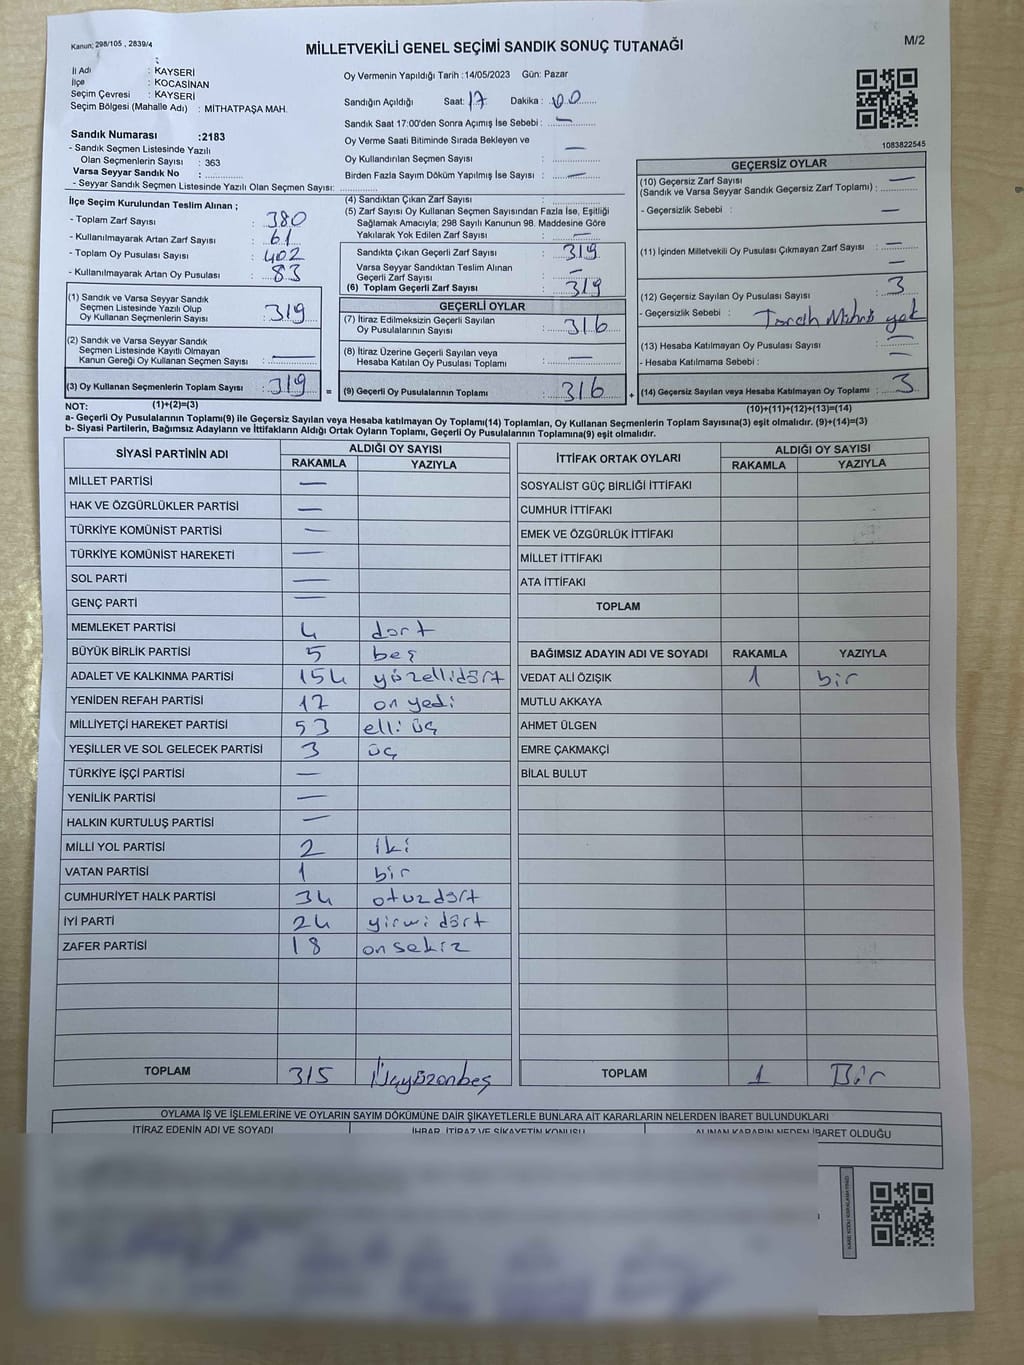 Kanun: 298/105 , 2839/4
MİLLETVEKİLİ GENEL SEÇİMİ SANDIK SONUÇ TUTANAĞI
M/2
İl Adı : KAYSERİ
İlçe : KOCASİNAN
Seçim Çevresi : KAYSERİ
Seçim Bölgesi (Mahalle Adı) : MİTHATPAŞA MAH.
Sandık Numarası :2183
- Sandık Seçmen Listesinde Yazılı
Olan Seçmenlerin Sayısı : 363
Varsa Seyyar Sandık No :
- Seyyar Sandık Seçmen Listesinde Yazılı Olan Seçmen Sayısı:
Oy Vermenin Yapıldığı Tarih :14/05/2023 Gün: Pazar
Sandığın Açıldığı Saat: 17 Dakika : 00
Sandık Saat 17:00'den Sonra Açımış İse Sebebi : —
Oy Verme Saati Bitiminde Sırada Bekleyen ve
Oy Kullandırılan Seçmen Sayısı : —
Birden Fazla Sayım Döküm Yapılmış İse Sayısı : —
1083822545
İlçe Seçim Kurulundan Teslim Alınan ;
- Toplam Zarf Sayısı : 380
- Kullanılmayarak Artan Zarf Sayısı : 61
- Toplam Oy Pusulası Sayısı : 402
- Kullanılmayarak Artan Oy Pusulası : 83
(1) Sandık ve Varsa Seyyar Sandık
Seçmen Listesinde Yazılı Olup
Oy Kullanan Seçmenlerin Sayısı : 319
(2) Sandık ve Varsa Seyyar Sandık
Seçmen Listesinde Kayıtlı Olmayan
Kanun Gereği Oy Kullanan Seçmen Sayısı : —
(3) Oy Kullanan Seçmenlerin Toplam Sayısı : 319
(1)+(2)=(3)
(4) Sandıktan Çıkan Zarf Sayısı :
(5) Zarf Sayısı Oy Kullanan Seçmen Sayısından Fazla İse, Eşitliği
Sağlamak Amacıyla; 298 Sayılı Kanunun 98. Maddesine Göre
Yakılarak Yok Edilen Zarf Sayısı : —
Sandıkta Çıkan Geçerli Zarf Sayısı : 319
Varsa Seyyar Sandıktan Teslim Alınan
Geçerli Zarf Sayısı : —
(6) Toplam Geçerli Zarf Sayısı : 319
GEÇERLİ OYLAR
(7) İtiraz Edilmeksizin Geçerli Sayılan
Oy Pusulalarının Sayısı : 316
(8) İtiraz Üzerine Geçerli Sayılan veya
Hesaba Katılan Oy Pusulası Toplamı : —
= (9) Geçerli Oy Pusulalarının Toplamı : 316
GEÇERSİZ OYLAR
(10) Geçersiz Zarf Sayısı
(Sandık ve Varsa Seyyar Sandık Geçersiz Zarf Toplamı) : —
- Geçersizlik Sebebi : —
(11) İçinden Milletvekili Oy Pusulası Çıkmayan Zarf Sayısı : —
(12) Geçersiz Sayılan Oy Pusulası Sayısı : 3
- Geçersizlik Sebebi : Tercih Mührü yok
(13) Hesaba Katılmayan Oy Pusulası Sayısı : —
- Hesaba Katılmama Sebebi : —
+ (14) Geçersiz Sayılan veya Hesaba Katılmayan Oy Toplamı : 3
(10)+(11)+(12)+(13)=(14)
NOT:
a- Geçerli Oy Pusulalarının Toplamı(9) ile Geçersiz Sayılan veya Hesaba katılmayan Oy Toplamı(14) Toplamları, Oy Kullanan Seçmenlerin Toplam Sayısına(3) eşit olmalıdır. (9)+(14)=(3)
b- Siyasi Partilerin, Bağımsız Adayların ve İttifakların Aldığı Ortak Oyların Toplamı, Geçerli Oy Pusulalarının Toplamına(9) eşit olmalıdır.
SİYASİ PARTİNİN ADI ALDIĞI OY SAYISI
RAKAMLA YAZIYLA
MİLLET PARTİSİ —
HAK VE ÖZGÜRLÜKLER PARTİSİ —
TÜRKİYE KOMÜNİST PARTİSİ —
TÜRKİYE KOMÜNİST HAREKETİ —
SOL PARTİ —
GENÇ PARTİ —
MEMLEKET PARTİSİ 4 dört
BÜYÜK BİRLİK PARTİSİ 5 beş
ADALET VE KALKINMA PARTİSİ 154 yüzellidört
YENİDEN REFAH PARTİSİ 17 on yedi
MİLLİYETÇİ HAREKET PARTİSİ 53 elli üç
YEŞİLLER VE SOL GELECEK PARTİSİ 3 üç
TÜRKİYE İŞÇİ PARTİSİ —
YENİLİK PARTİSİ —
HALKIN KURTULUŞ PARTİSİ —
MİLLİ YOL PARTİSİ 2 iki
VATAN PARTİSİ 1 bir
CUMHURİYET HALK PARTİSİ 34 otuzdört
İYİ PARTİ 24 yirmi dört
ZAFER PARTİSİ 18 onsekiz
TOPLAM 315 Üçyüzonbeş
İTTİFAK ORTAK OYLARI ALDIĞI OY SAYISI
RAKAMLA YAZIYLA
SOSYALİST GÜÇ BİRLİĞİ İTTİFAKI
CUMHUR İTTİFAKI
EMEK VE ÖZGÜRLÜK İTTİFAKI
MİLLET İTTİFAKI
ATA İTTİFAKI
TOPLAM
BAĞIMSIZ ADAYIN ADI VE SOYADI RAKAMLA YAZIYLA
VEDAT ALİ ÖZIŞIK 1 bir
MUTLU AKKAYA
AHMET ÜLGEN
EMRE ÇAKMAKÇİ
BİLAL BULUT
TOPLAM 1 Bir
OYLAMA İŞ VE İŞLEMLERİNE VE OYLARIN SAYIM DÖKÜMÜNE DAİR ŞİKAYETLERLE BUNLARA AİT KARARLARIN NELERDEN İBARET BULUNDUKLARI
İTİRAZ EDENİN ADI VE SOYADI İHBAR, İTİRAZ VE ŞİKAYETİN KONUSU ALINAN KARARIN NEDEN İBARET OLDUĞU